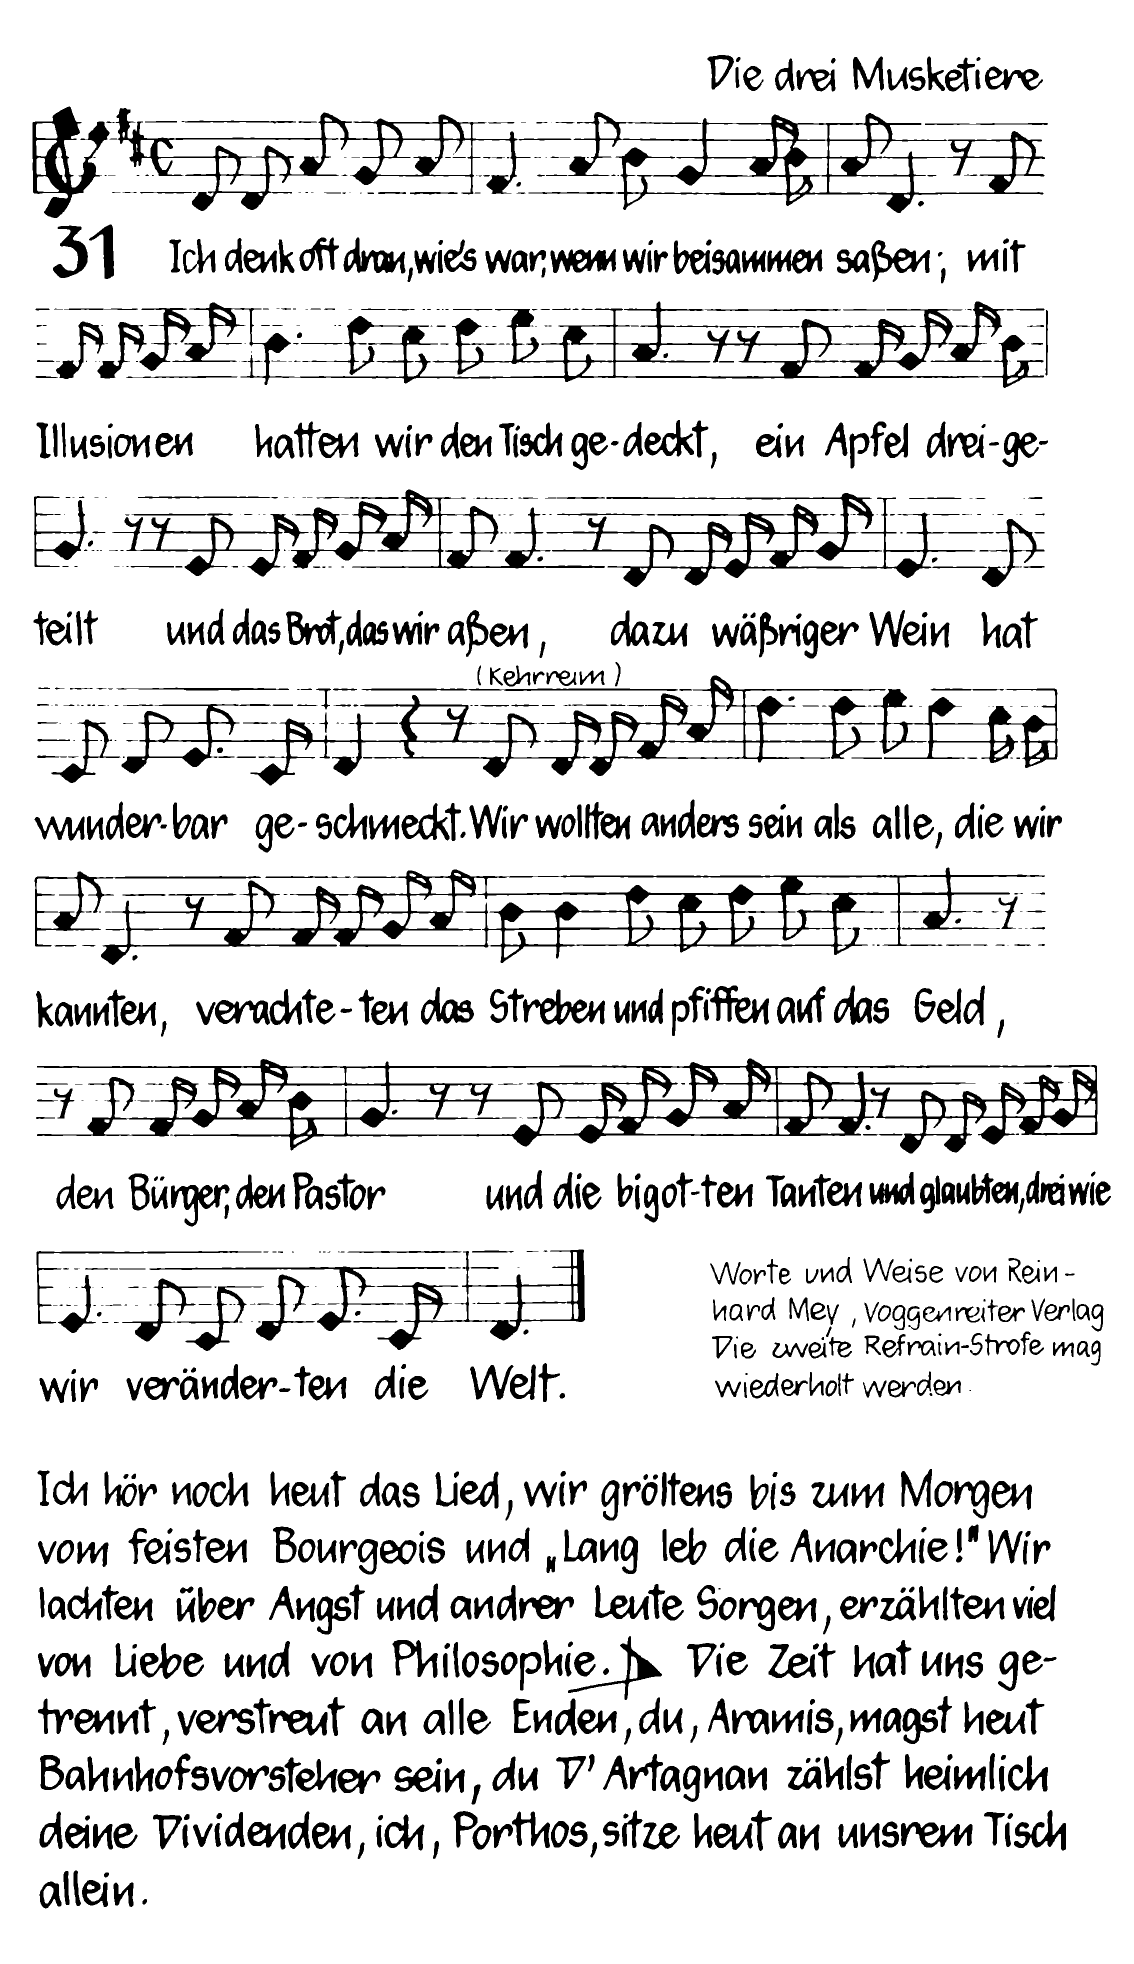 Die drei Musketiere
31 Ich denk oft dran, wie's war, wenn wir beisammen saßen; mit
Illusionen hatten wir den Tisch ge-deckt, ein Apfel drei-ge-
teilt und das Brot, das wir aßen, dazu wäßriger Wein hat
(Kehrreim)
wunder-bar ge-schmeckt. Wir wollten anders sein als alle, die wir
kannten, verachte-ten das Streben und pfiffen auf das Geld,
den Bürger, den Pastor und die bigot-ten Tanten und glaubten, drei wie
wir veränder-ten die Welt.
Worte und Weise von Rein-
hard Mey, Voggenreiter Verlag
Die zweite Refrain-Strofe mag
wiederholt werden.
Ich hör noch heut das Lied, wir gröltens bis zum Morgen
vom feisten Bourgeois und „Lang leb die Anarchie!" Wir
lachten über Angst und andrer Leute Sorgen, erzählten viel
von Liebe und von Philosophie. Die Zeit hat uns ge-
trennt, verstreut an alle Enden, du, Aramis, magst heut
Bahnhofsvorsteher sein, du D'Artagnan zählst heimlich
deine Dividenden, ich, Porthos, sitze heut an unsrem Tisch
allein.